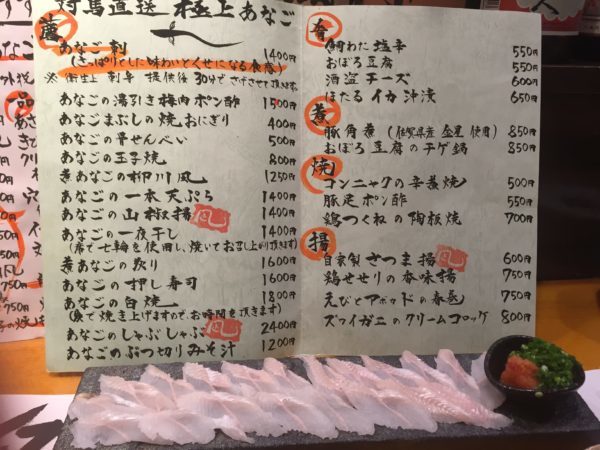 対馬直送 極上あなご
あなご刺 1400円
(さっぱりとした味わいとくせになる食感)
※衛生上 刺身 提供後 30分でさげさせて頂きます
あなごの湯引き梅肉ポン酢 1500円
あなごまぶしの焼おにぎり 400円
あなごの骨せんべい 500円
あなごの玉子焼 800円
煮あなごの柳川風 1250円
あなごの一本天ぷら 1400円
あなごの山椒揚 1400円
あなごの一夜干し 1400円
(席で七輪を使用し、焼いてお召し上がり頂きます)
煮あなごの炙り 1600円
あなごの押し寿司 1600円
あなごの白焼 1800円
(奥で焼き上げますので、お時間を頂きます)
あなごのしゃぶしゃぶ 2400円
あなごのぶつ切りみそ汁 1200円
肴
鯛わた塩辛 550円
おぼろ豆腐 550円
酒盗チーズ 600円
ほたるイカ沖漬 650円
煮
豚角煮 (佐賀県産 金星 使用) 850円
おぼろ豆腐のチゲ鍋 850円
焼
コンニャクの辛煮焼 500円
豚足ポン酢 550円
鶏つくねの陶板焼 700円
揚
自家製さつま揚 600円
鶏せせりの香味揚 750円
えびとアボカドの春巻 750円
ズワイガニのクリームコロッケ 800円